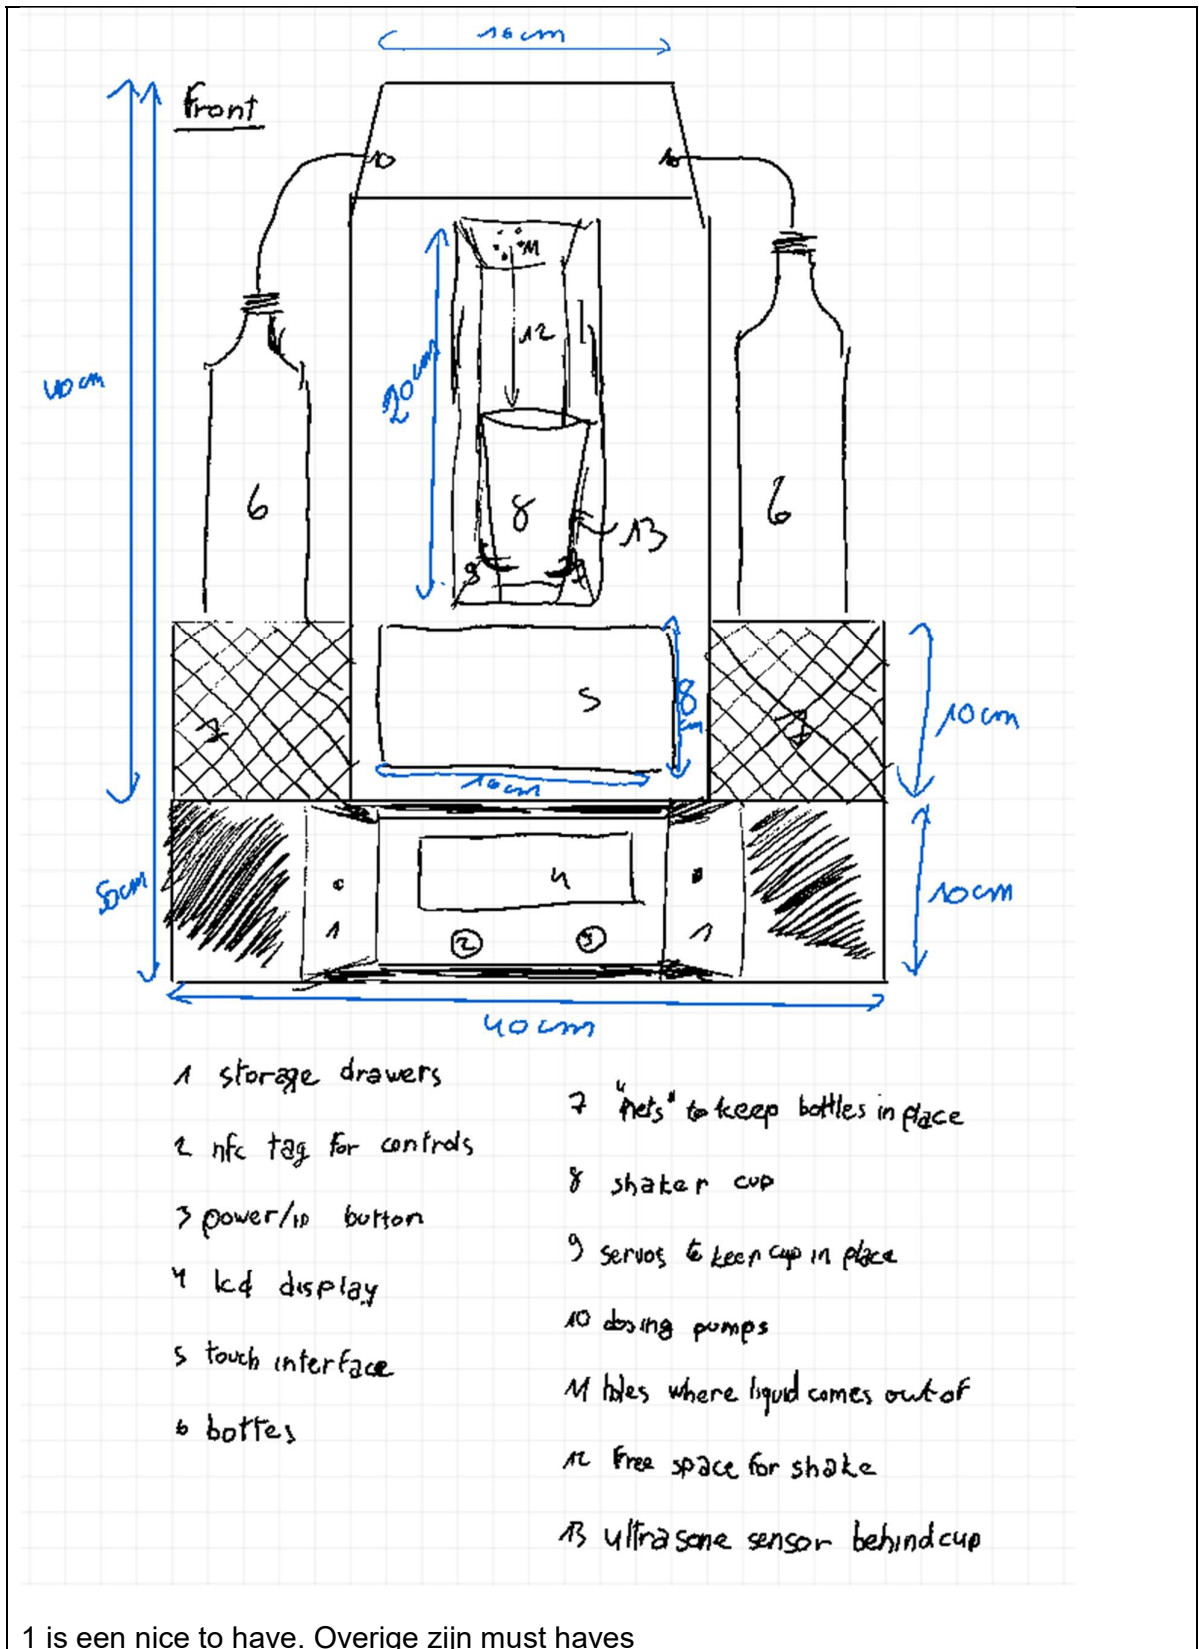 16cm
Front
10
10
11
12
20cm
40cm
6
8
6
13
9
9
5
8cm
7
7
10cm
16cm
4
50cm
1
1
10cm
2
3
40cm
1 storage drawers
2 nfc tag for controls
3 power/ button
4 lcd display
5 touch interface
6 bottes
7 "nets" to keep bottles in place
8 shaker cup
9 servos to keep cup in place
10 dosing pumps
11 holes where liquid comes out of
12 free space for shake
13 ultrasone sensor behind cup
1 is een nice to have. Overige zijn must haves